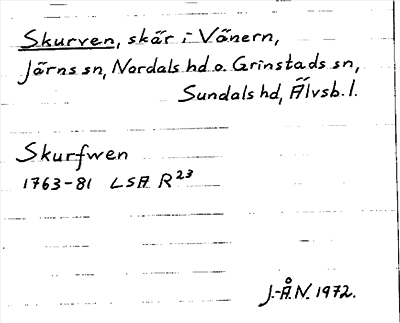 Skurven, skär i Vänern,
Järns sn, Nordals hd o. Grinstads sn,
Sundals hd, Älvsb. l.
Skurfwen
1763-81 LSA R23
J.-Å.N. 1972.